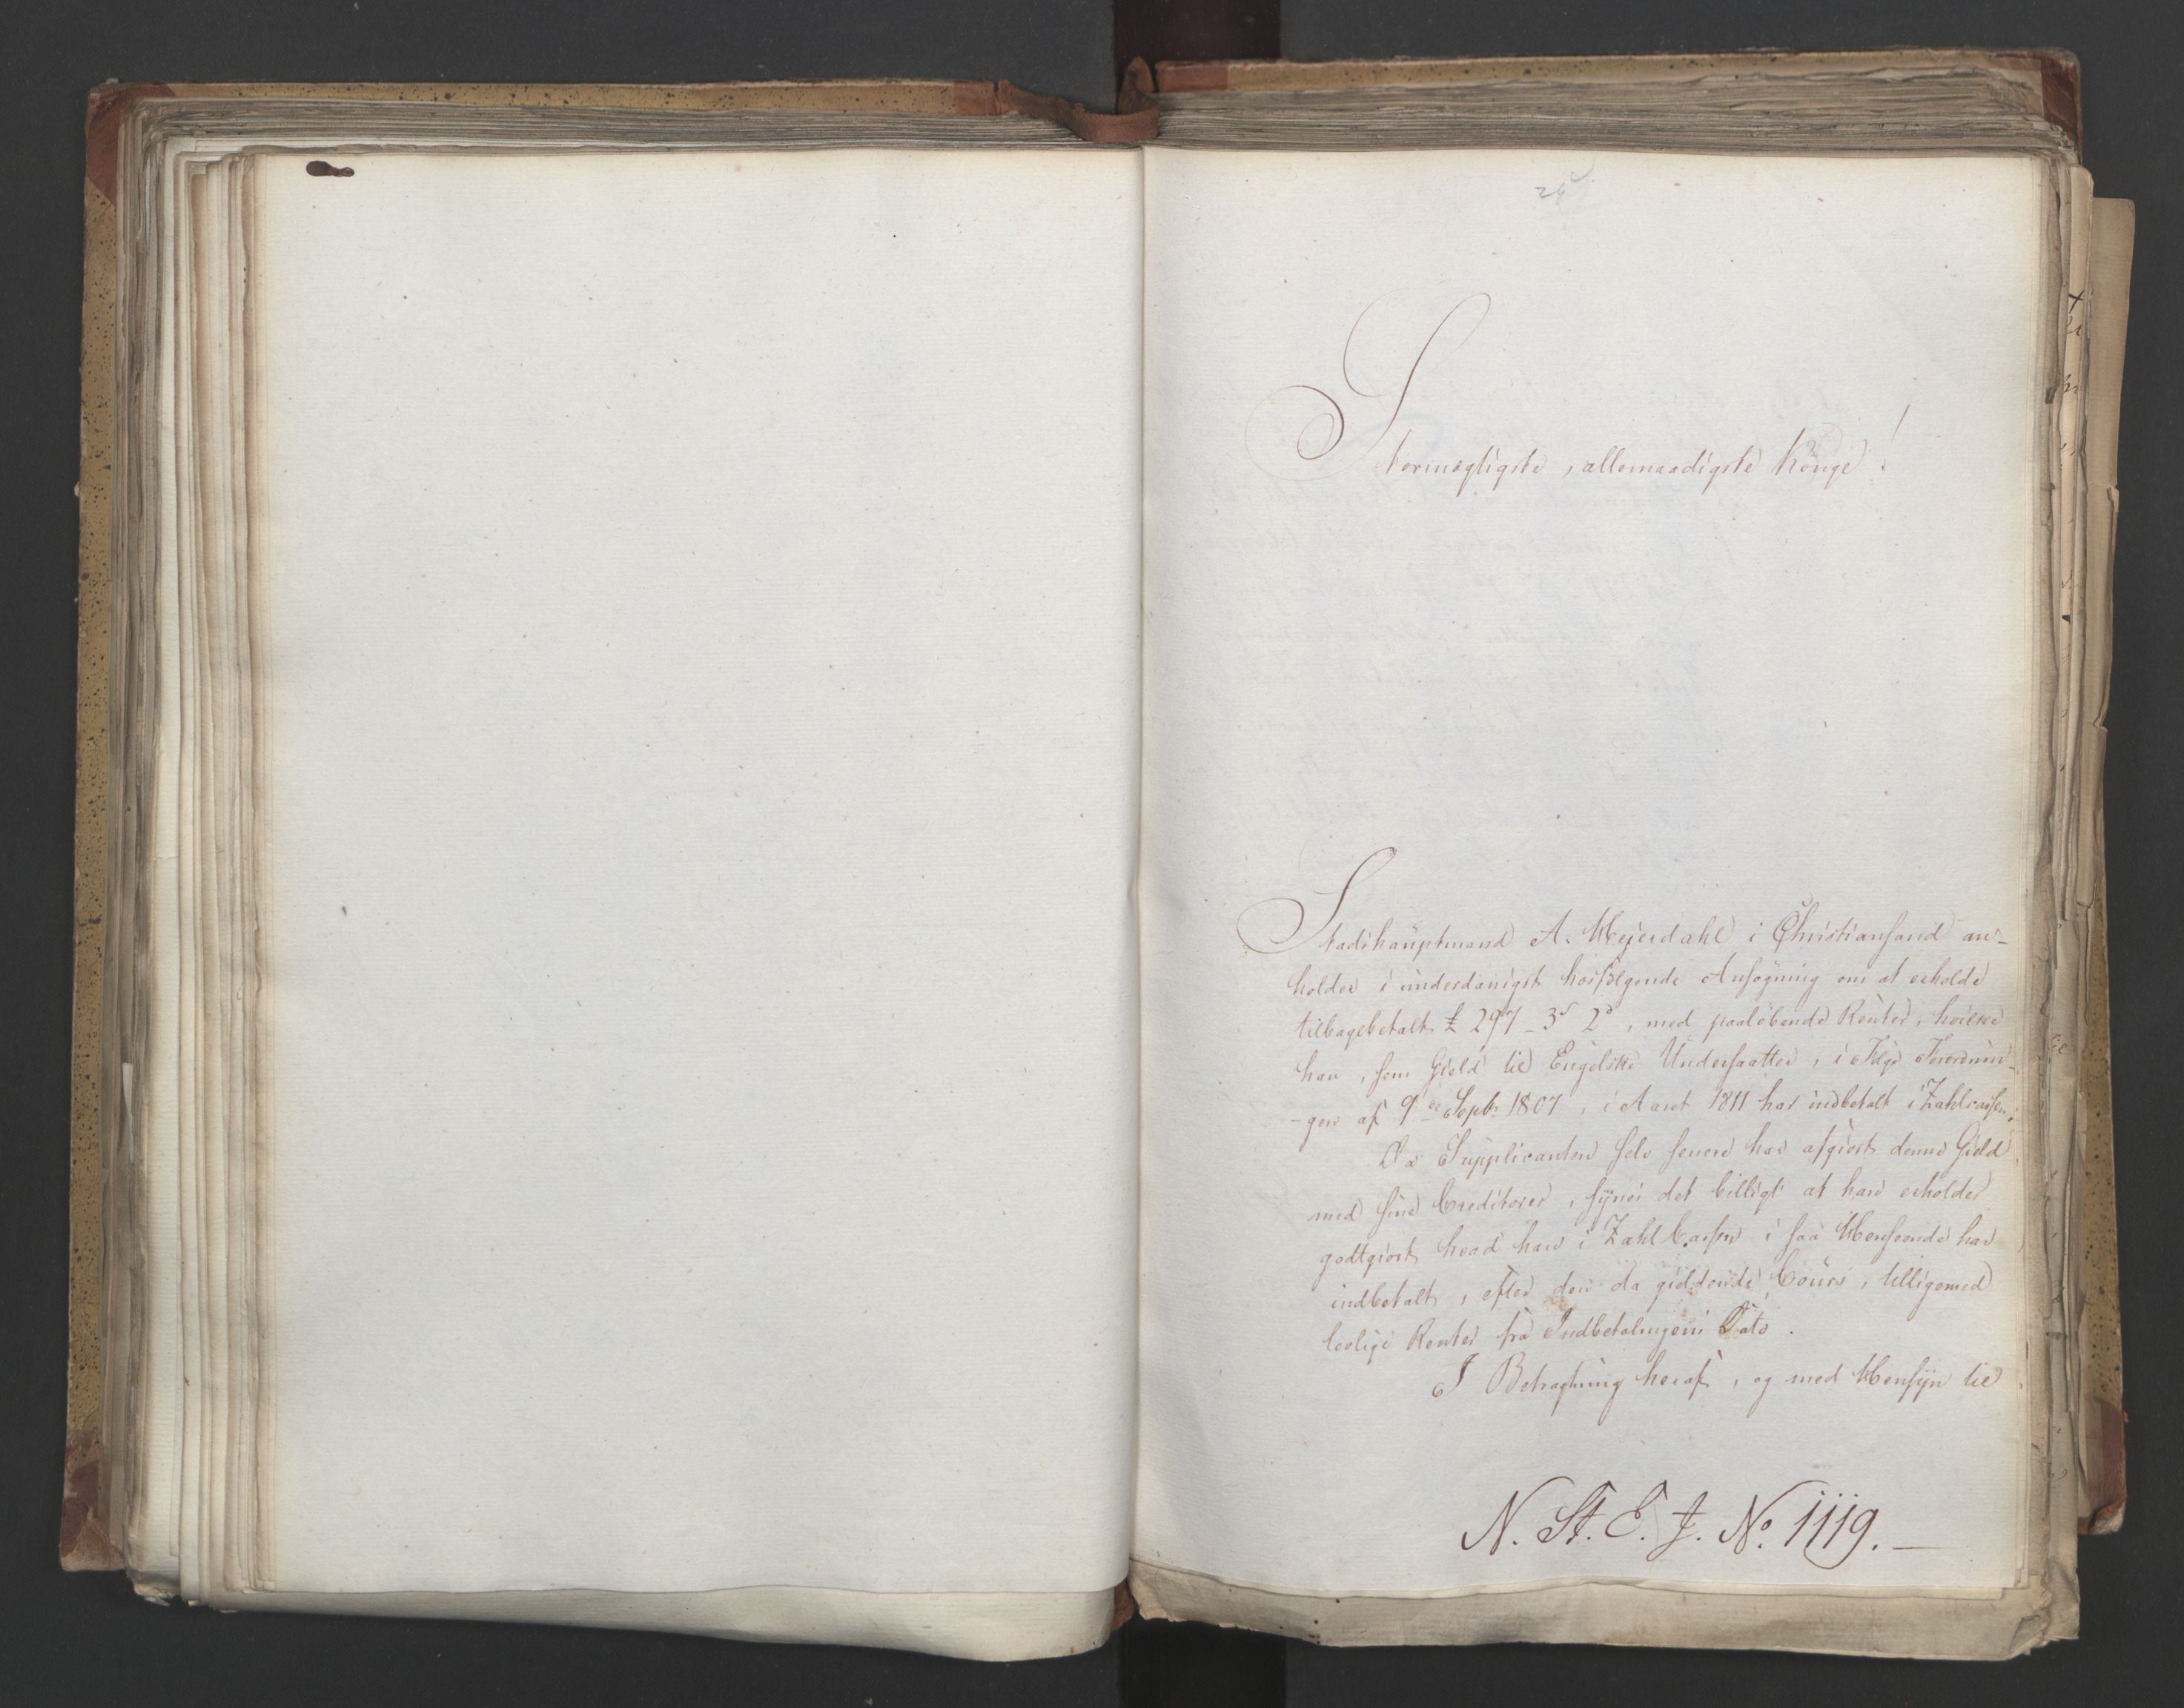 26
Stormægtigste, allernaadigste Konge!
Stadshauptmand A. Heyerdahl i Christiansand an-
holder i underdanigst hosfølgende Ansøgning om at erholde
tilbagebetalt £ 297 - 3s 2d, med paaløbende Renter, hvilke
han, som Gield til Engelske Undersaatter, i Følge Forordnin-
-gen af 9de Septr 1807, i Aaret 1811 har indbetalt i Zahlcassen.
Da Supplicanten selv senere har afgiort denne Gield
med sine Creditorer, synes det billigt at han erholder
godtgiort hvad han i ZahlCassen i saa Henseende har
indbetalt, efter den da gieldende Cours, tilligemed
lovlige Renter fra Indbetalingens Dato.
I Betragtning heraf, og med Hensyn til
N. St. E. J. No. 1119.